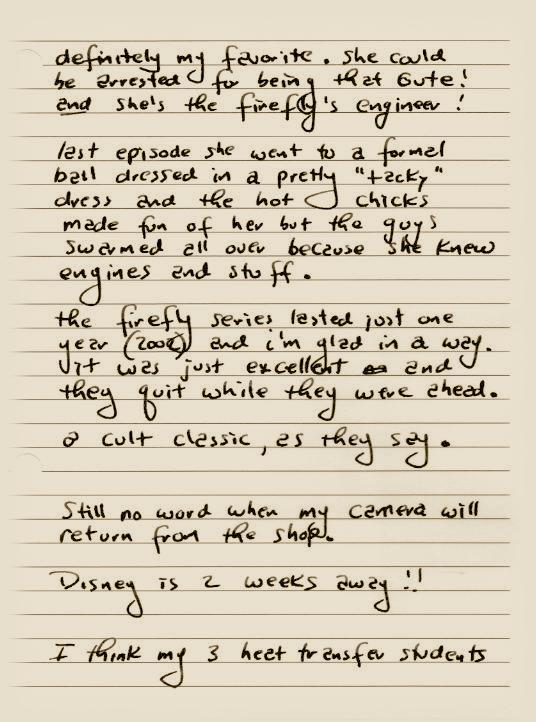 definitely my favorite. She could
be arrested for being that cute!
and she's the firefly's engineer!
last episode she went to a formal
ball dressed in a pretty "tacky"
dress and the hot chicks
made fun of her but the guys
swarmed all over because she knew
engines and stuff.
the firefly series lasted just one
year (2002) and i'm glad in a way.
it was just excellent and
they quit while they were ahead.
a cult classic, as they say.
Still no word when my camera will
return from the shop.
Disney is 2 weeks away!!
I think my 3 heat transfer students